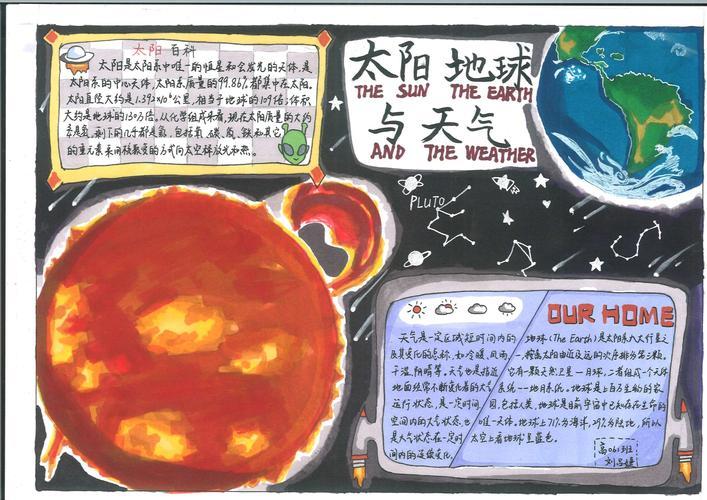 太阳百科
太阳是太阳系中唯一的恒星和会发光的天体,是
太阳系的中心天体,太阳系质量的99.86%都集中在太阳。
太阳直径大约是1.392×10⁶公里,相当于地球的109倍;体积
大约是地球的130万倍。从化学组成来看,现在太阳质量的大约
剩下的几乎都是氦,包括氧、碳、氖、铁和其它
的重元素采用核聚变的方式向太空释放光和热。
太阳 地球
THE SUN THE EARTH
与天气
AND THE WEATHER
PLUTO
天气是一定区域短时间内的
及其变化的总称,如冷暖、风雨、
干湿、阴晴等。天气也是指近
地面经常不断变化着的大气
运行状态,是一定时间
空间内的大气状态,也
是大气状态在一定时
间内的连续变化。
OUR HOME
地球(The Earth)是太阳系八大行星之
一,按离太阳由近及远的次序排为第三颗。
它有一颗天然卫星—月球,二者组成一个天体
系统—地月系统。地球是上百万生物的家
园,包括人类,地球是目前宇宙中已知存在生命的
唯一天体。地球上71%为海洋,29%为陆地,所以
太空上看地球呈蓝色。
高061班